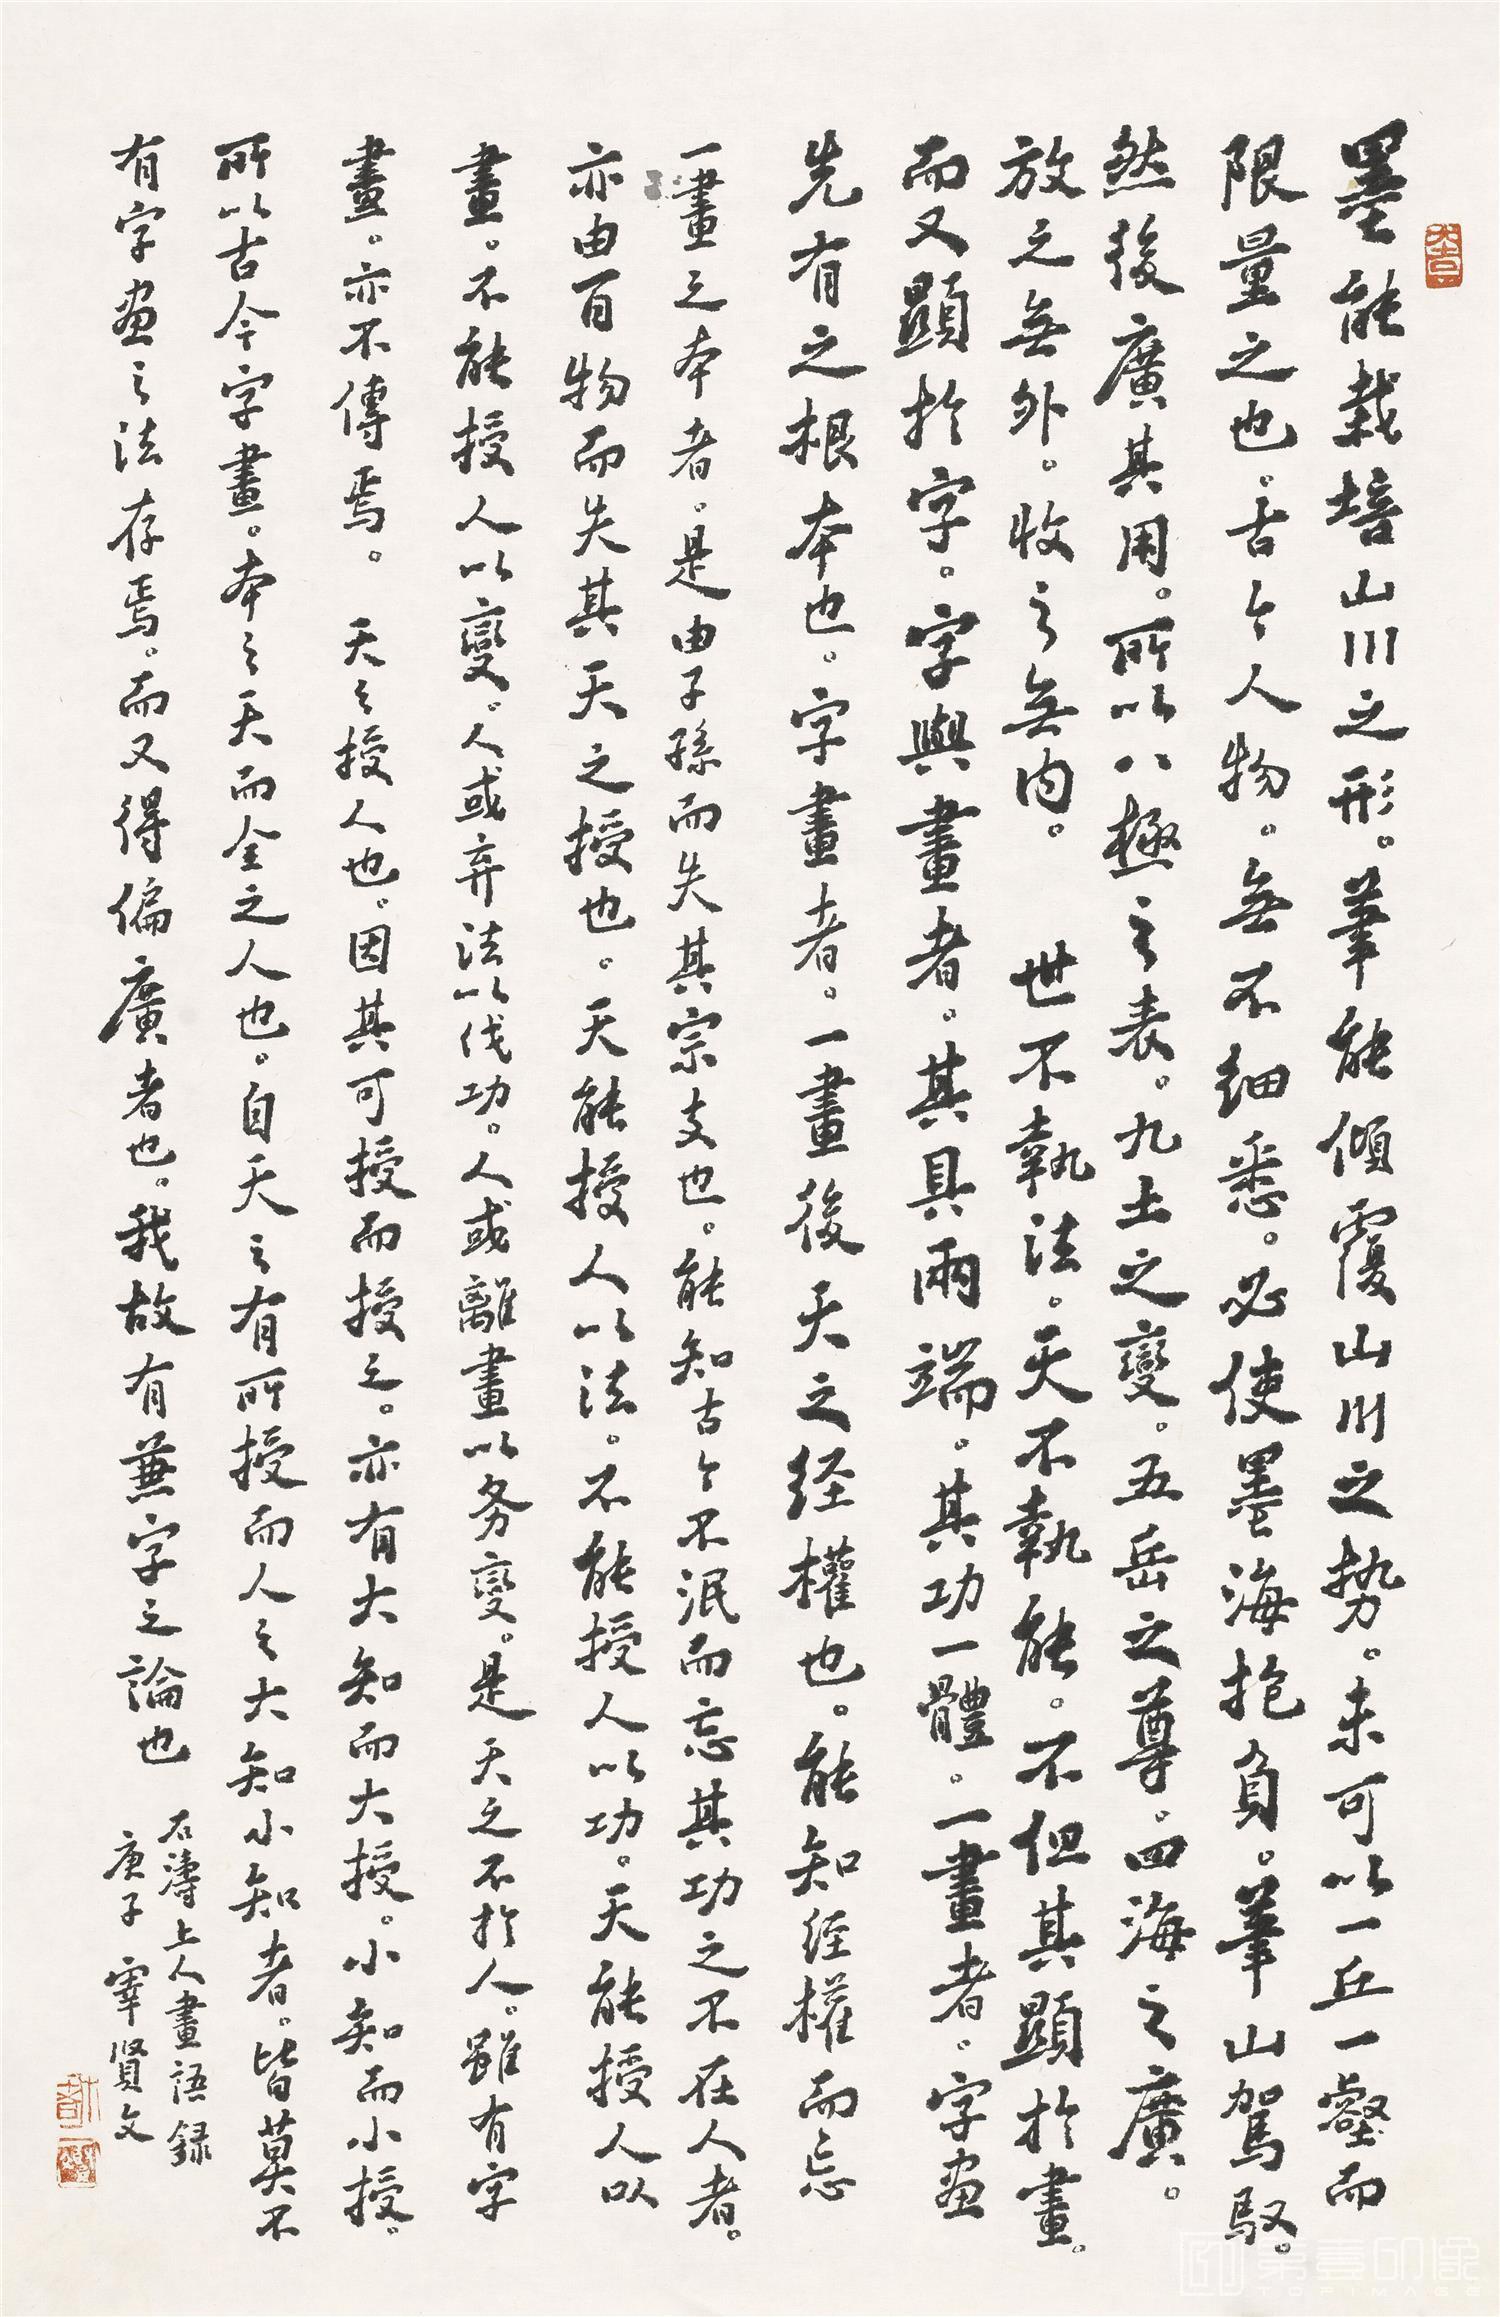 墨能栽培山川之形。筆能傾覆山川之势。未可以一丘一壑而
限量之也。古今人物。無不细悉。必使墨海抱負。筆山駕馭。
然後廣其用。所以八極之表。九土之變。五岳之尊。四海之廣。
放之無外。收之無内。 世不執法。天不執能。不但其顯於畫。
而又顯於字。字與畫者。其具兩端。其功一體。一畫者。字画
先有之根本也。字畫者。一畫後天之经權也。能知经權而忘
一畫之本者。是由子孫而失其宗支也。能知古今不泯而忘其功之不在人者。
亦由百物而失其天之授也。天能授人以法。不能授人以功。天能授人以
畫。不能授人以變。人或弃法以伐功。人或離畫以务變。是天之不於人。雖有字
畫。亦不傳焉。 天之授人也。因其可授而授之。亦有大知而大授。小知而小授。
所以古今字畫。本之天而全之人也。自天之有所授而人之大知小知者。皆莫不
有字画之法存焉。而又得偏廣者也。我故有兼字之論也
石濤上人畫語録
庚子 賢文
第壹印像
TOPIMAGE